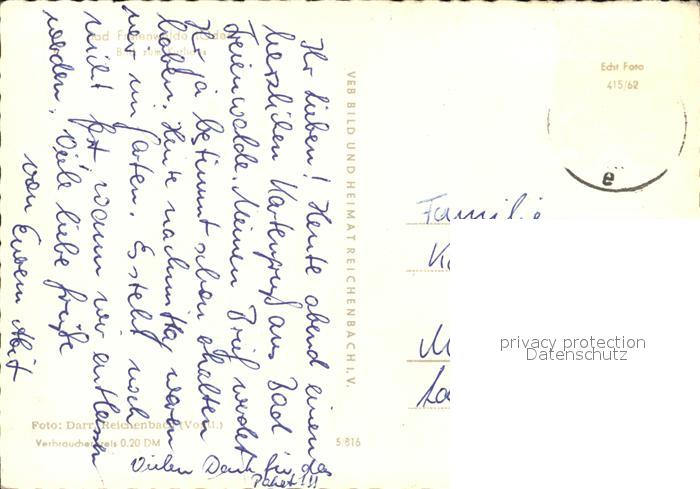 Bad Freienwalde (Oder)
Blick zum Kurhaus
Ihr Lieben! Heute abend einen
herzlichen Kartengruß aus Bad
Freienwalde. Meinen Brief werdet
Ihr ja bestimmt schon erhalten
haben. Heute nachmittag waren
wir im Garten. Es steht noch
nicht fest, wann wir entlassen
werden. Viele liebe Grüße
von Eurem
Vielen Dank für das
Paket!!!
Foto: Darr, Reichenbach (Vogtl.)
Verbraucherpreis 0,20 DM
5 816
VEB BILD UND HEIMAT REICHENBACH I. V.
Echt Foto
415/62
e
Familie
K
M
privacy protection
Datenschutz